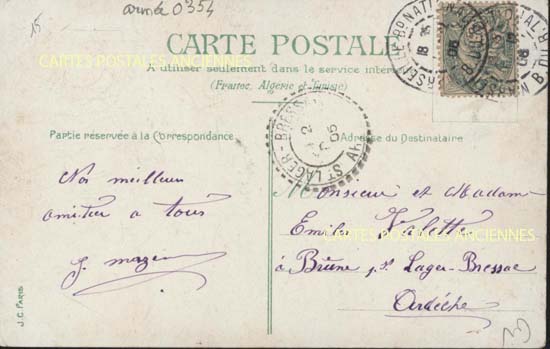 15
année 0354
CARTE POSTALE
A utiliser seulement dans le service intérieur
(France, Algerie et Tunisie)
CARTES POSTALES ANCIENNES
Partie réservée à la Correspondance
Adresse du Destinataire
ST LAGER-BRESSAC
Nos meilleurs
amitier a tous
J. mazen
Monsieur et Madame
Emile Valette
CARTES POSTALES ANCIENNES
à Brune p. St Lager-Bressac
Ardèche
J.C. PARIS